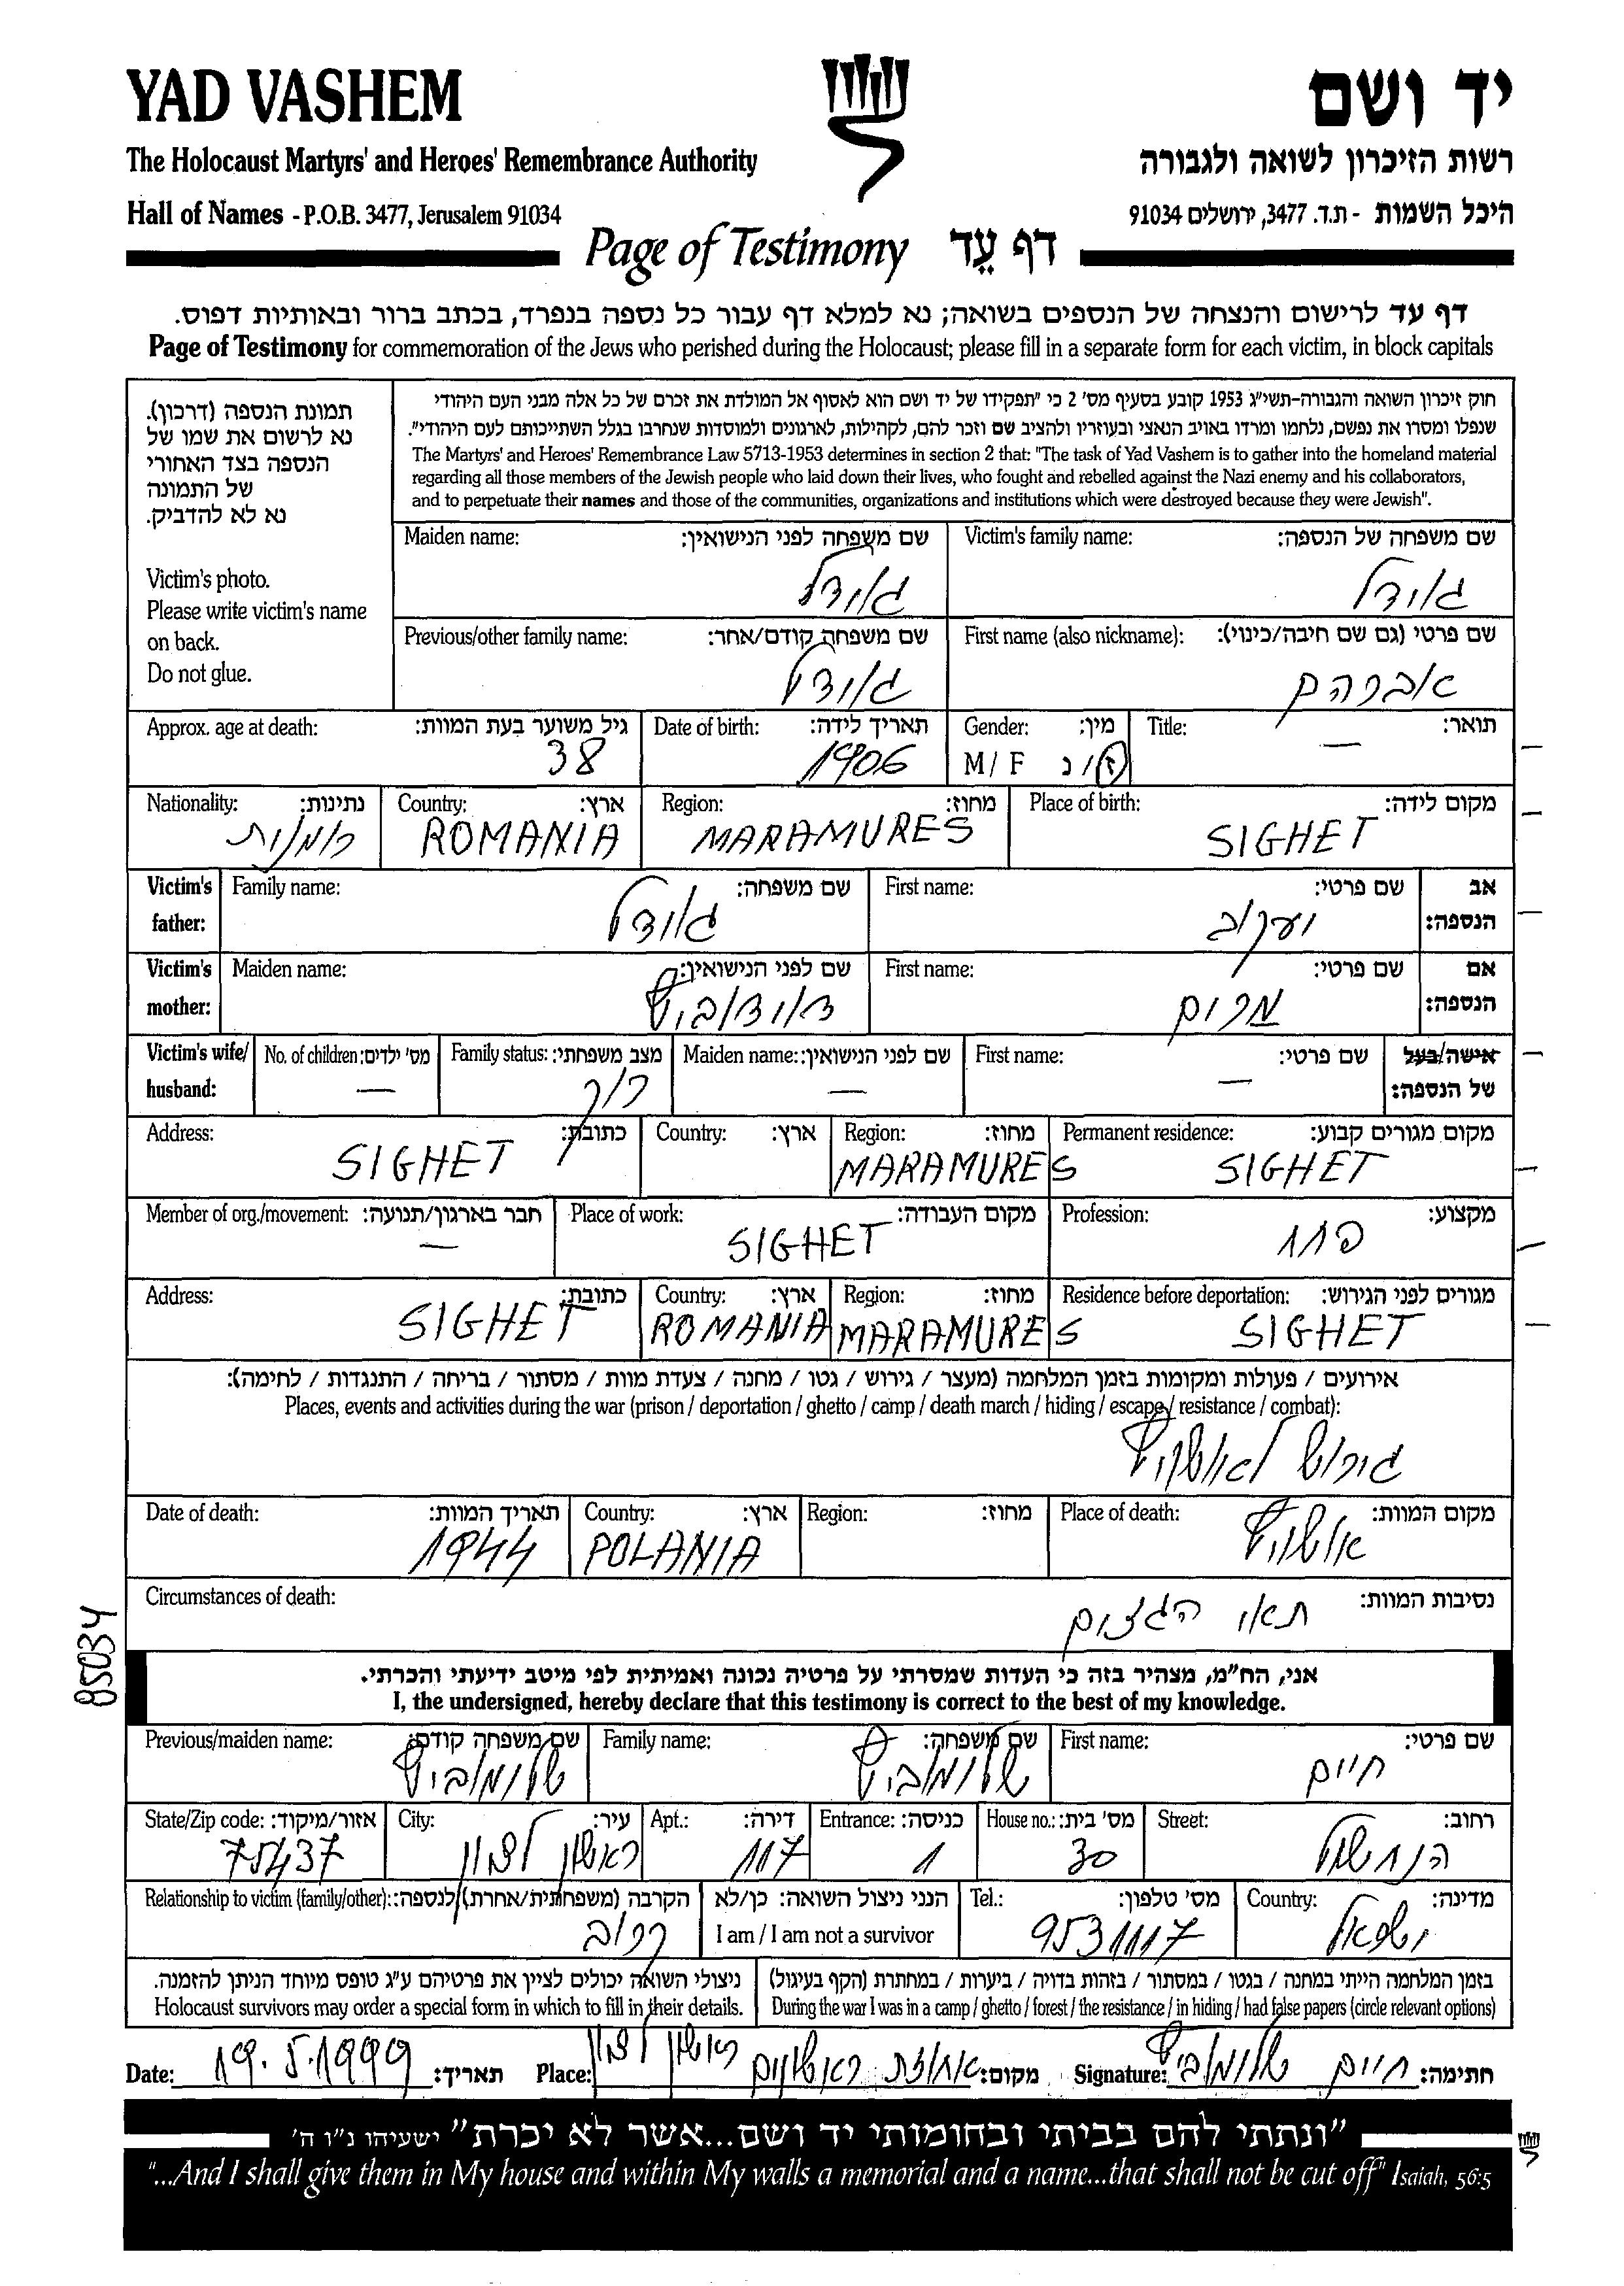 YAD VASHEM
יד ושם
The Holocaust Martyrs' and Heroes' Remembrance Authority
רשות הזיכרון לשואה ולגבורה
Hall of Names - P.O.B. 3477, Jerusalem 91034
היכל השמות - ת.ד. 3477, ירושלים 91034
Page of Testimony דף עד
דף עד לרישום והנצחה של הנספים בשואה; נא למלא דף עבור כל נספה בנפרד, בכתב ברור ובאותיות דפוס.
Page of Testimony for commemoration of the Jews who perished during the Holocaust; please fill in a separate form for each victim, in block capitals
תמונת הנספה (דרכון).
נא לרשום את שמו של
הנספה בצד האחורי
של התמונה
נא לא להדביק.
Victim's photo.
Please write victim's name
on back.
Do not glue.
חוק זיכרון השואה והגבורה-תשי"ג 1953 קובע בסעיף מס' 2 כי "תפקידו של יד ושם הוא לאסוף אל המולדת את זכרם של כל אלה מבני העם היהודי
שנפלו ומסרו את נפשם, נלחמו ומרדו באויב הנאצי ובעוזריו ולהציב שם וזכר להם, לקהילות, לארגונים ולמוסדות שנחרבו בגלל השתייכותם לעם היהודי".
The Martyrs' and Heroes' Remembrance Law 5713-1953 determines in section 2 that: "The task of Yad Vashem is to gather into the homeland material
regarding all those members of the Jewish people who laid down their lives, who fought and rebelled against the Nazi enemy and his collaborators,
and to perpetuate their names and those of the communities, organizations and institutions which were destroyed because they were Jewish".
Victim's family name: שם משפחה של הנספה:
Maiden name: שם משפחה לפני הנישואין:
First name (also nickname): שם פרטי (גם שם חיבה/כינוי):
אברהם
Previous/other family name: שם משפחה קודם/אחר:
Title: תואר:
—
Gender: מין:
M / F ז/נ
Date of birth: תאריך לידה:
1906
Approx. age at death: גיל משוער בעת המוות:
38
Place of birth: מקום לידה:
SIGHET
Region: מחוז:
MARAMURES
Country: ארץ:
ROMANIA
Nationality: נתינות:
רומנית
Victim's father: אב הנספה:
First name: שם פרטי:
יעקוב
Family name: שם משפחה:
Victim's mother: אם הנספה:
First name: שם פרטי:
מרים
Maiden name: שם לפני הנישואין:
דוידוביץ
Victim's wife/ husband: אישה/בעל של הנספה:
First name: שם פרטי:
—
Maiden name: שם לפני הנישואין:
—
Family status: מצב משפחתי:
רוק
No. of children: מס' ילדים:
—
Permanent residence: מקום מגורים קבוע:
SIGHET
Region: מחוז:
MARAMURES
Country: ארץ:
Address: כתובת:
SIGHET
Profession: מקצוע:
פחח
Place of work: מקום העבודה:
SIGHET
Member of org./movement: חבר בארגון/תנועה:
—
Residence before deportation: מגורים לפני הגירוש:
SIGHET
Region: מחוז:
MARAMURES
Country: ארץ:
ROMANIA
Address: כתובת:
SIGHET
אירועים / פעולות ומקומות בזמן המלחמה (מעצר / גירוש / גטו / מחנה / צעדת מוות / מסתור / בריחה / התנגדות / לחימה):
Places, events and activities during the war (prison / deportation / ghetto / camp / death march / hiding / escape / resistance / combat):
גירוש
Place of death: מקום המוות:
אושויץ
Region: מחוז:
Country: ארץ:
POLANIA
Date of death: תאריך המוות:
1944
Circumstances of death: נסיבות המוות:
תאי הגזים
85034
אני, הח"מ, מצהיר בזה כי העדות שמסרתי על פרטיה נכונה ואמיתית לפי מיטב ידיעתי והכרתי.
I, the undersigned, hereby declare that this testimony is correct to the best of my knowledge.
First name: שם פרטי:
חיים
Family name: שם משפחה:
שלומוביץ
Previous/maiden name: שם משפחה קודם:
שלומוביץ
Street: רחוב:
הנחשול
House no.: מס' בית:
30
Entrance: כניסה:
1
Apt.: דירה:
117
City: עיר:
ראשון לציון
State/Zip code: אזור/מיקוד:
75437
Country: מדינה:
ישראל
Tel.: מס' טלפון:
9531117
הנני ניצול השואה: כן/לא
I am / I am not a survivor
Relationship to victim (family/other): הקרבה (משפחתית/אחרת) לנספה:
קרוב
בזמן המלחמה הייתי במחנה / בגטו / במסתור / בזהות בדויה / ביערות / במחתרת (הקף בעיגול)
During the war I was in a camp / ghetto / forest / the resistance / in hiding / had false papers (circle relevant options)
ניצולי השואה יכולים לציין את פרטיהם ע"ג טופס מיוחד הניתן להזמנה.
Holocaust survivors may order a special form in which to fill in their details.
Signature: חיים שלומוביץ חתימה:
Place: ראשון לציון אחוזת ראשונים מקום:
Date: 19.5.1999 תאריך:
"ונתתי להם בביתי ובחומותי יד ושם...אשר לא יכרת" ישעיהו נ"ו ה'
"...And I shall give them in My house and within My walls a memorial and a name...that shall not be cut off" Isaiah, 56:5